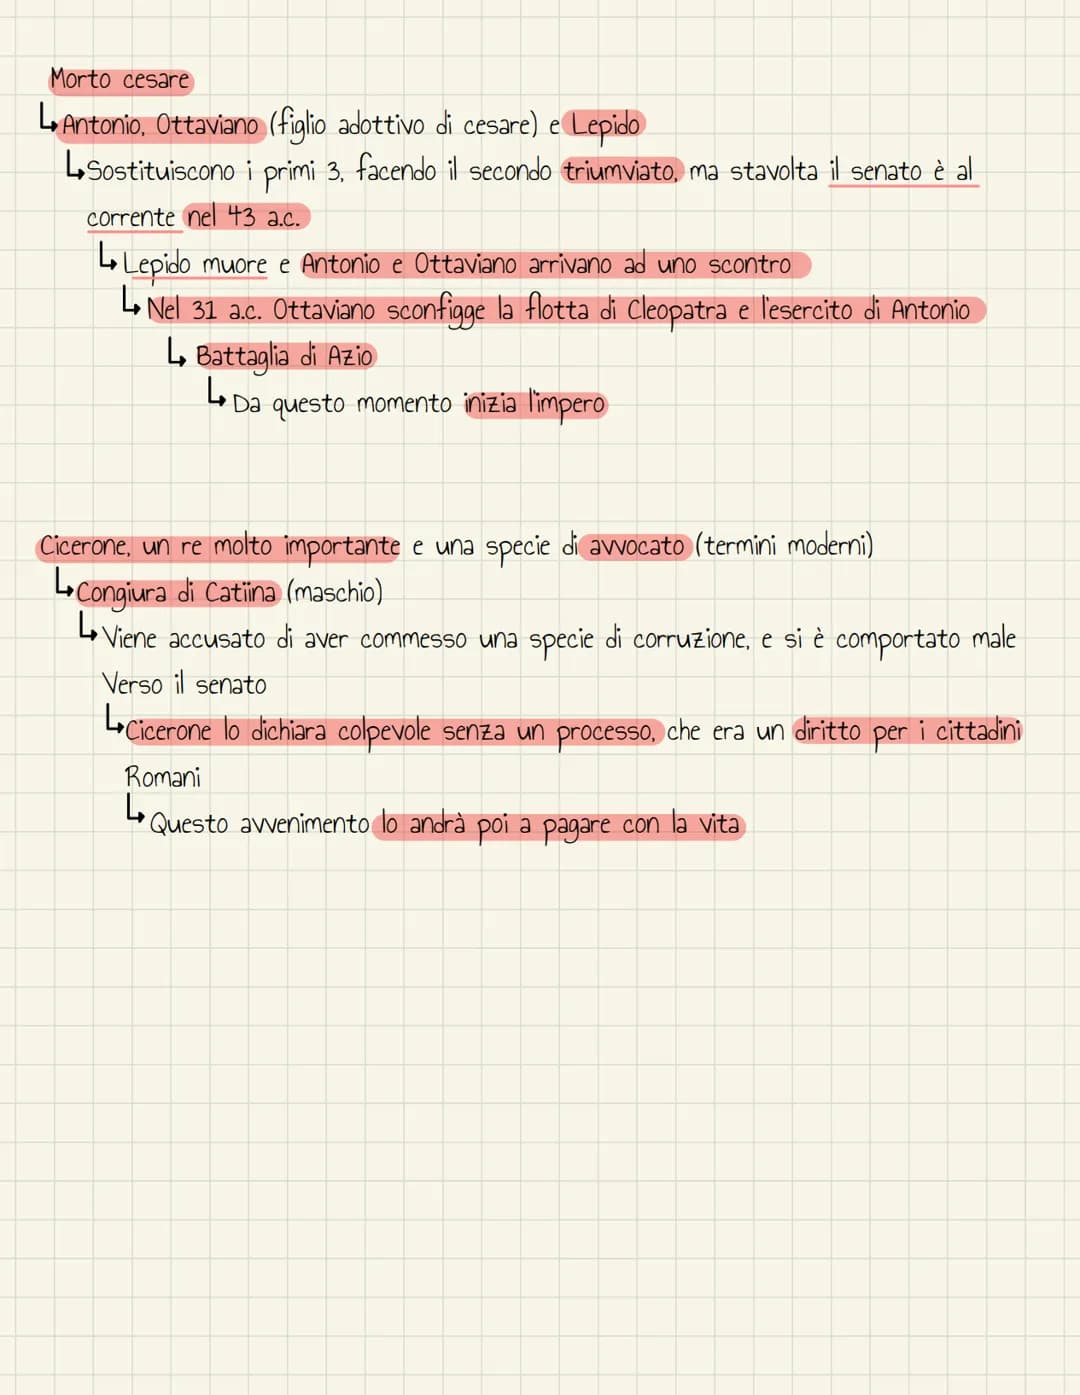 Morto cesare
Antonio, Ottaviano (figlio adottivo di cesare) e Lepido
Sostituiscono i primi 3, facendo il secondo triumviato, ma stavolta il senato è al
corrente nel 43 a.c.
Lepido muore e Antonio e Ottaviano arrivano ad uno scontro
Nel 31 a.c. Ottaviano sconfigge la flotta di Cleopatra e l'esercito di Antonio
Battaglia di Azio
Da questo momento inizia l'impero
Cicerone, un re molto importante e una specie di avvocato (termini moderni)
Congiura di Catiina (maschio)
Viene accusato di aver commesso una specie di corruzione, e si è comportato male
Verso il senato
Cicerone lo dichiara colpevole senza un processo, che era un diritto per i cittadini
Romani
Questo avvenimento lo andrà poi a pagare con la vita